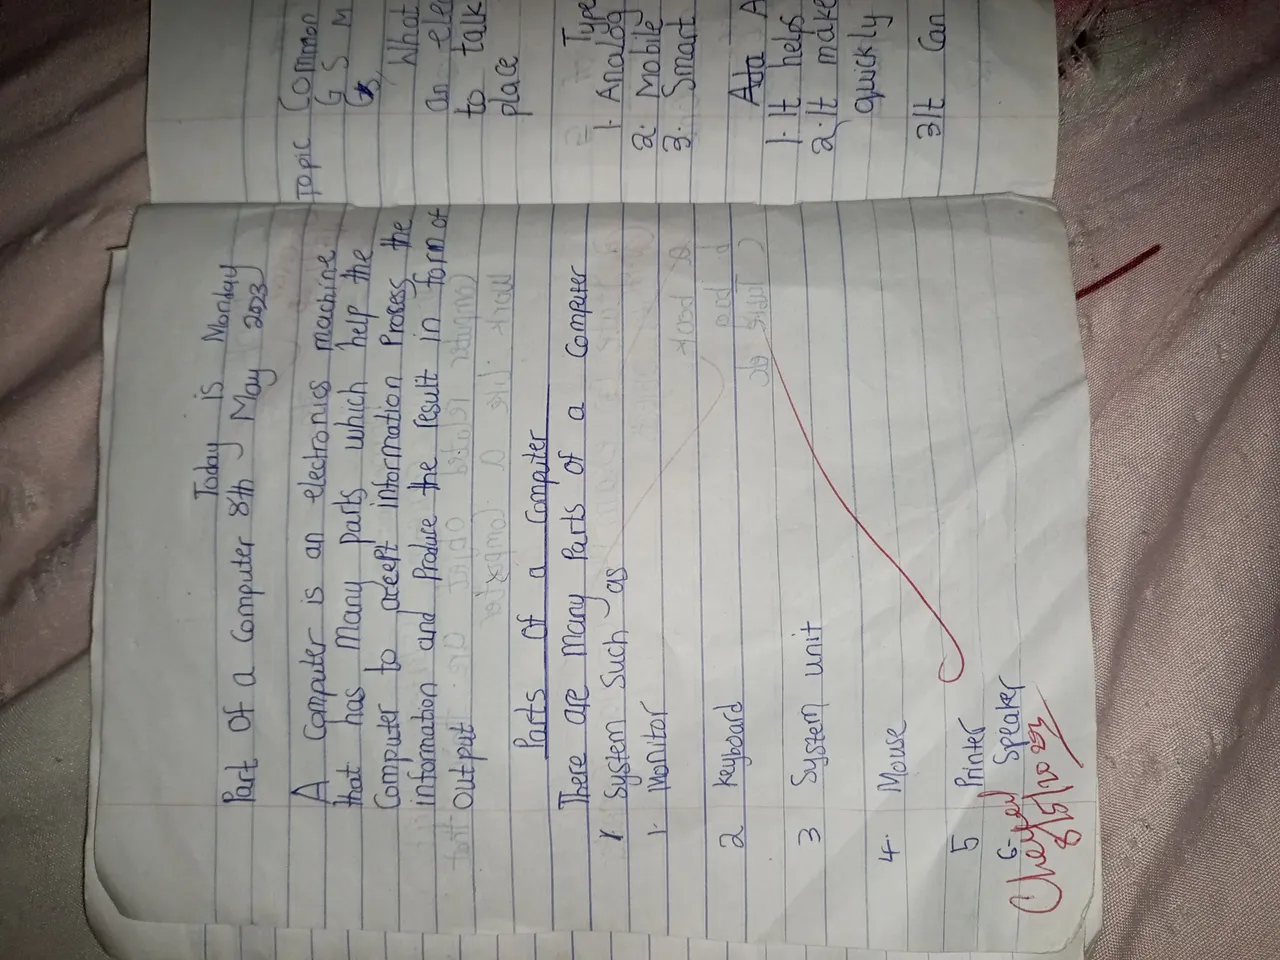 Today is Monday
Part Of a Computer 8th May 2023
A Computer is an electronics machine
that has Many parts which help the
Computer to accept information Prosess the
information and Produce the result in form of
Output
Parts Of a Computer
There are Many Parts Of a Computer
System Such as
1. Monitor
2 Keyboard
3 System unit
4. Mouse
5 Printer
6- Speaker
8/5/2023
Topic Common
G S M
What
an ele
to talk
place
Type
1. Analog
2. Mobile
3. Smart
A
1. It helps
2. It make
quickly
3 It Can